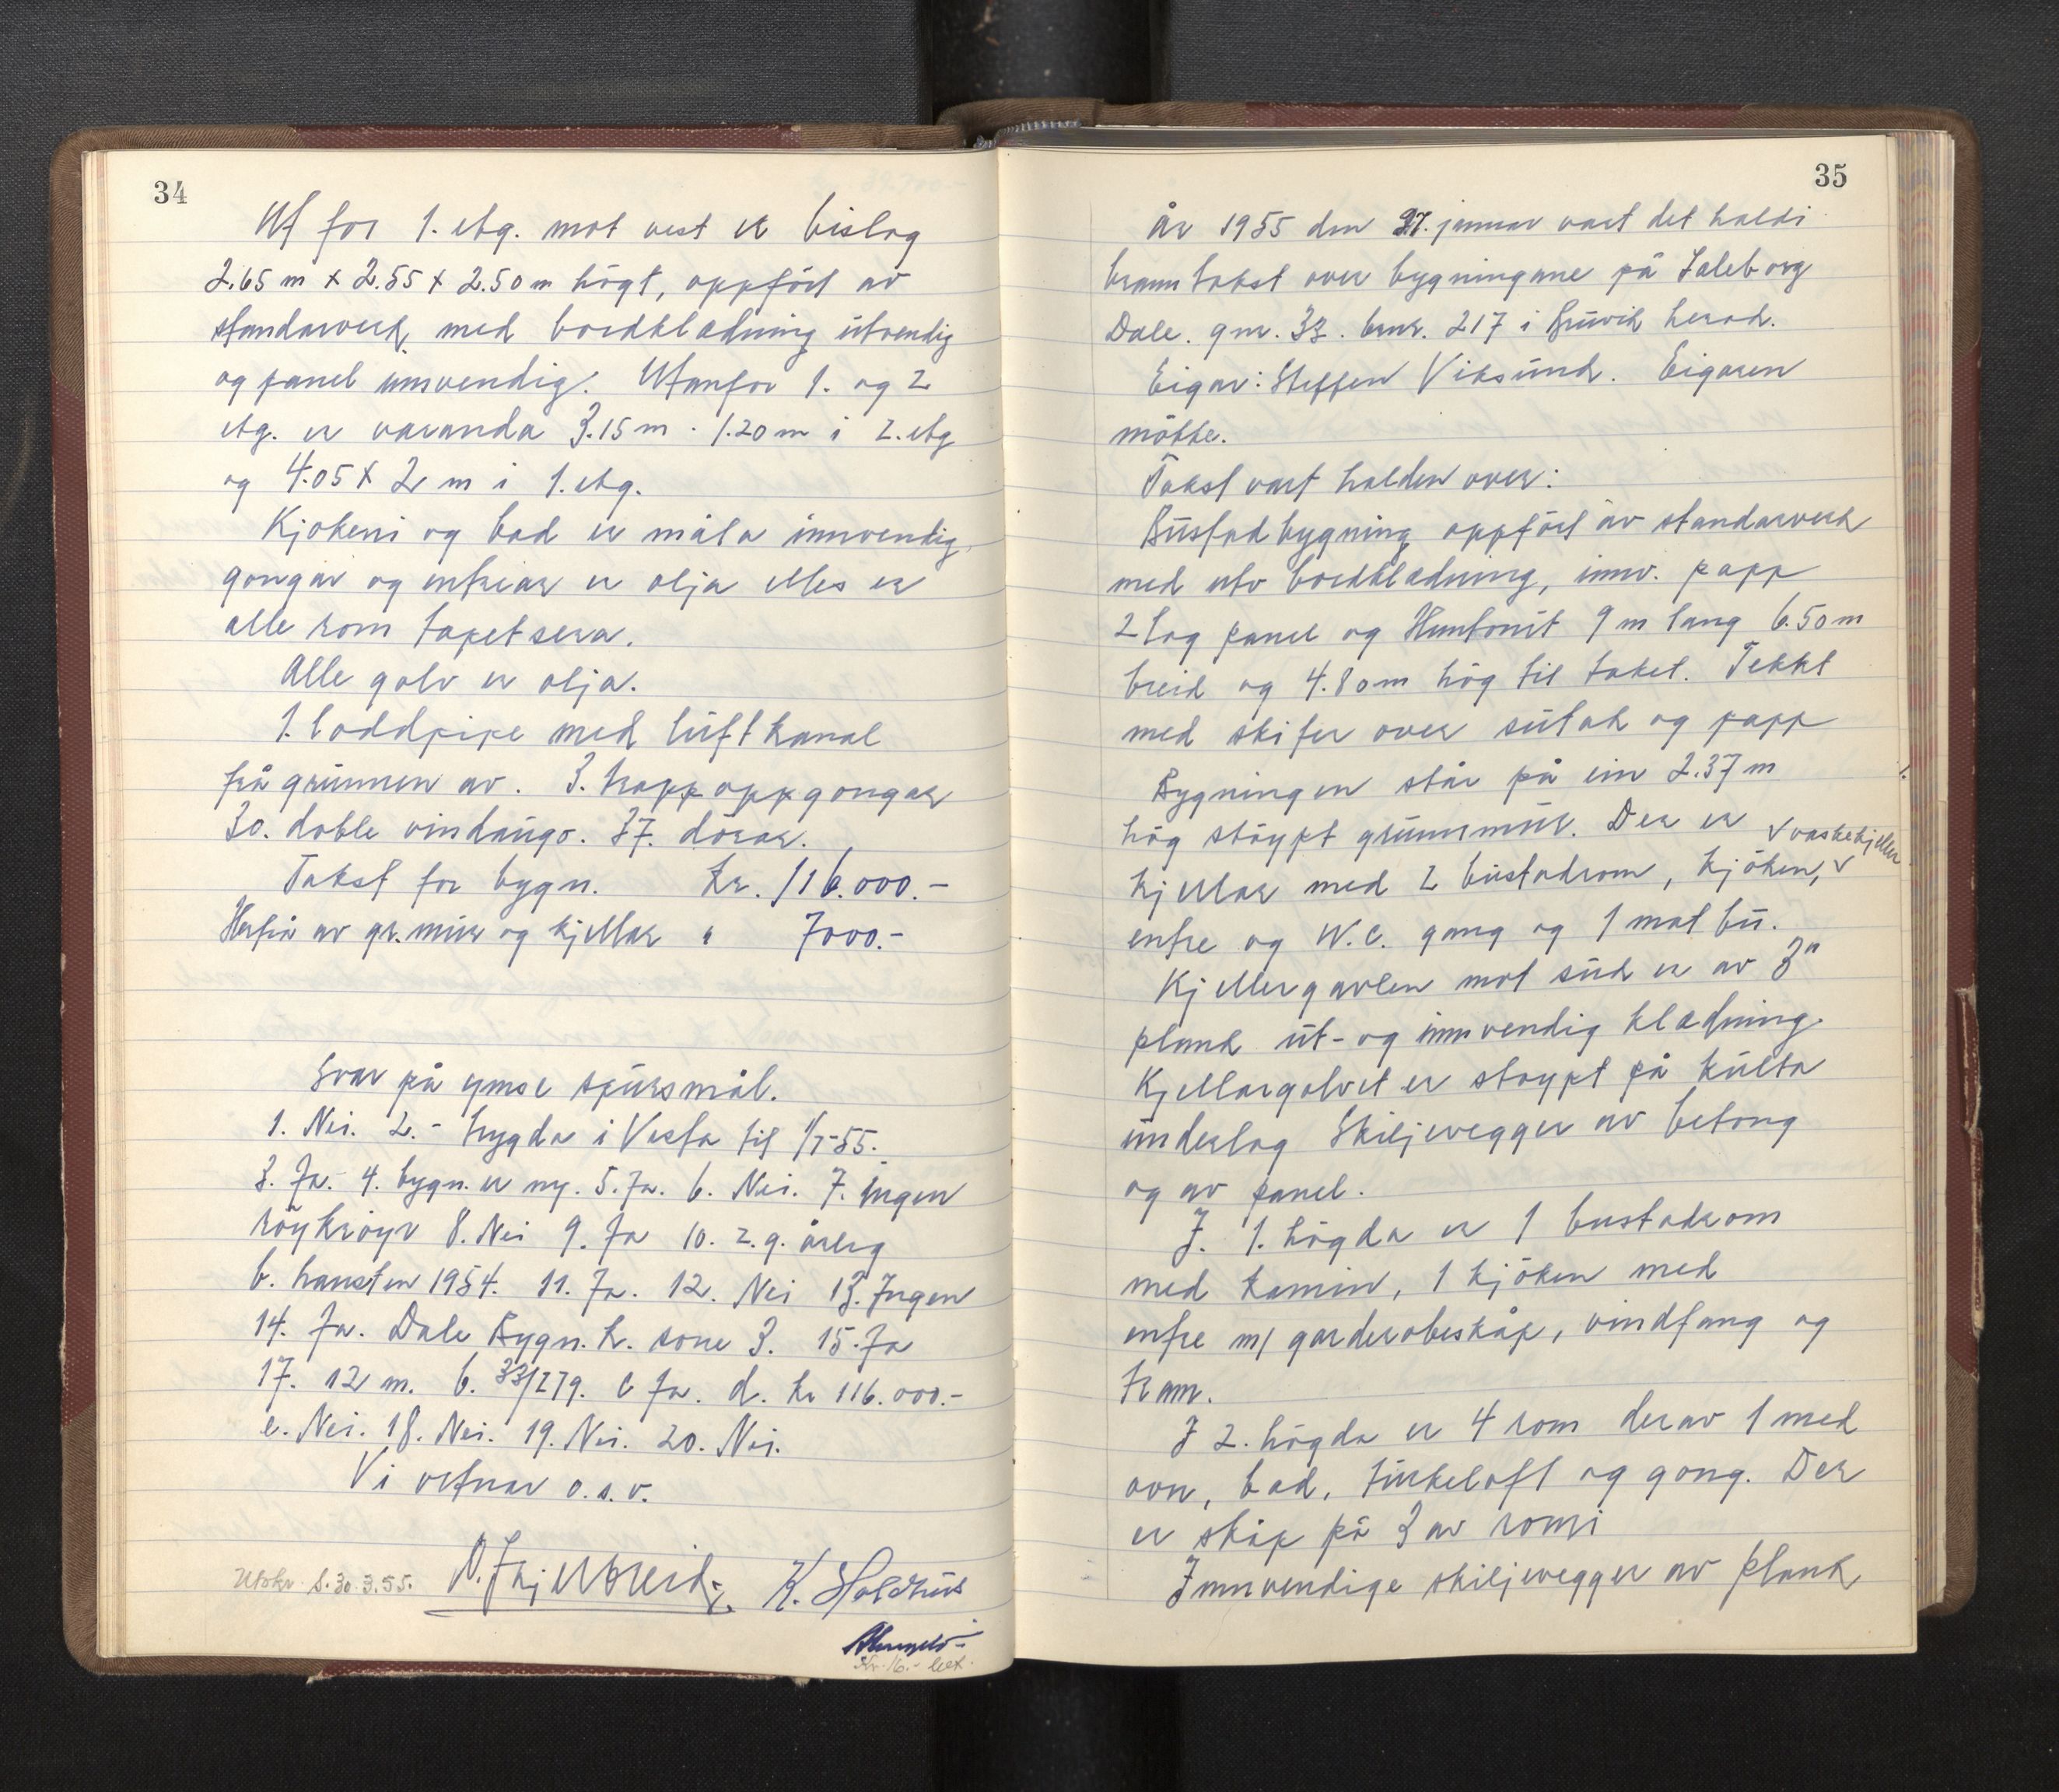 34
Ut for 1. etg. mot vest er bislag
2.65 m x 2.55 x 2.50 m högt, oppfört av
standarverk, med bordklædning utvendig
og panel innvendig. Utanfor 1. og 2
etg. er varanda 3.15 m · 1.20 m i 2. etg
og 4.05 x 2 m i 1. etg.
Kjökeni og bad er måla innvendig,
gongar og entrear er olja elles er
alle rom tapetsera.
Alle golv er olja.
1. loddpipe med luftkanal
frå grunnen av. 3. trappoppgongar
30. doble vindaugo. 37. dörar.
Takst for bygn. kr. 116.000.-
Herfrå av gr.mur og kjellar " 7000.-
Svar på ymse spursmål.
1. Nei. 2. - trygda i Vesta til 1/7-55.
3. Ja. 4. bygn. er ny. 5. Ja. 6. Nei. 7. Ingen
röykröyr 8. Nei 9. Ja 10. 2. g. årleg
b. hausten 1954. 11. Ja. 12. Nei 13. Ingen
14. Ja. Dale Bygn.k. sone 3. 15. Ja
17. 12 m. b. 33/279. c Ja. d. kr 116.000.-
e. Nei. 18. Nei. 19. Nei. 20. Nei.
Vi vitnar o.s.v.
Utskr. s. 30.3.55. O. Fkjelbreid. K. Holdhus
Kr. 16.- bet.
35
År 1955 den 27. januar vart det haldi
branntakst over bygningane på Soleborg
Dale. gnr. 33. bnr. 217 i Bruvik herad.
Eigar: Steffen Viksund. Eigaren
mötte.
Takst vart halden over:
Bustadbygning oppfört av standarverk
med utv bordklædning, innv. papp
2 lag panel og Huntonit 9 m lang 6.50 m
breid og 4.80 m hög til taket. Tekkt
med skifer over sutak og papp
Bygningen står på ein 2.37 m
hög stöypt grunnmur. Der er √ vaskekjeller
kjellar med 2 bustadrom, kjöken, √
entre og W.C. gang og 1 matbu.
Kjellergavlen mot sud er av 3"
plank ut- og innvendig klædning.
Kjellargolvet er stöypt på kulta
underlag Skiljevegger av betong
og av panel.
I. 1. högda er 1 bustadrom
med kamin, 1 kjöken med
entre m/ garderobeskåp, vindfang og
tram.
I 2. högda er 4 rom derav 1 med
ovn, bad, turkeloft og gong. Der
er skåp på 3 av romi
Innvendige skiljevegger av plank